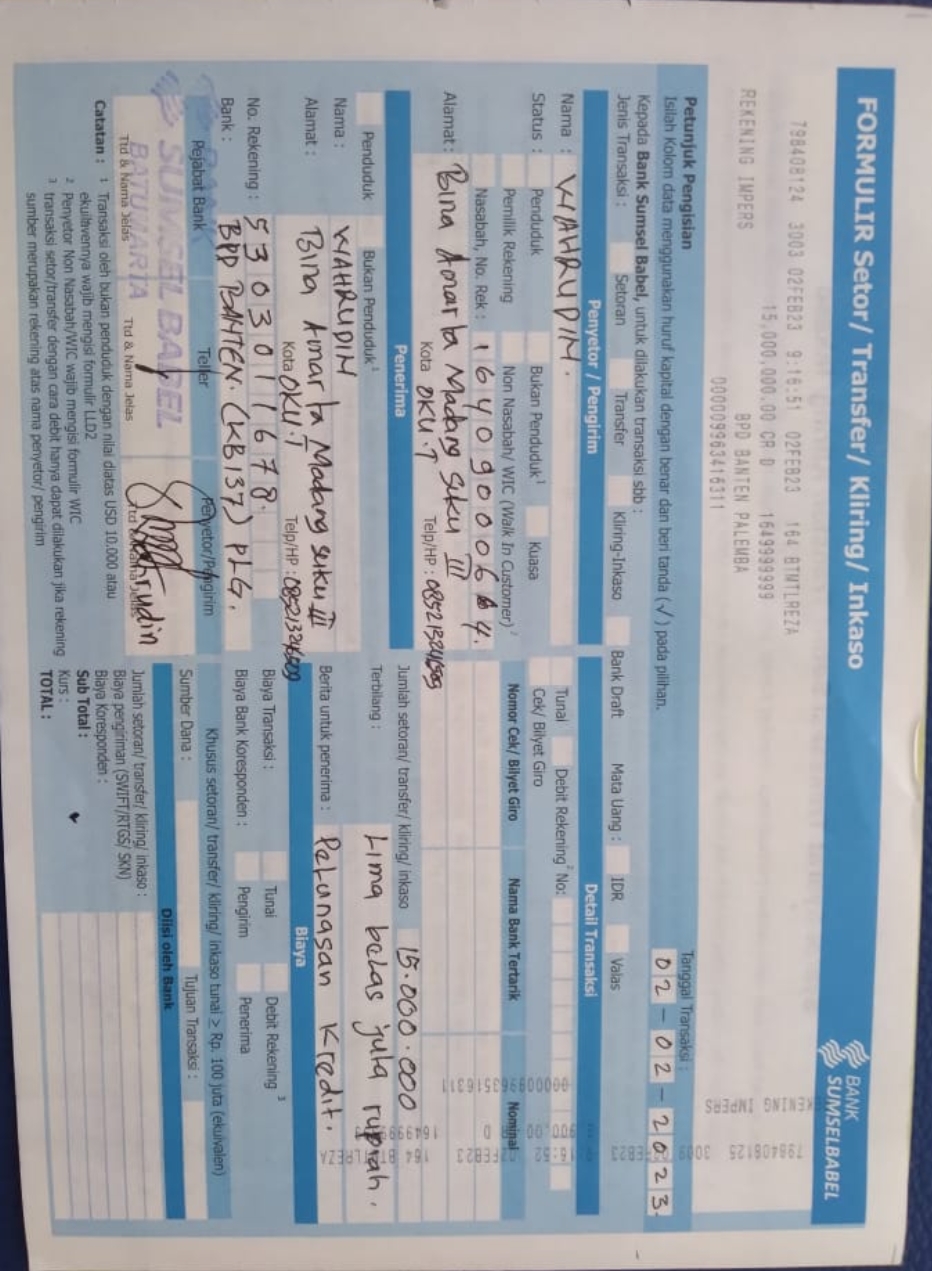 FORMULIR Setor/ Transfer/ Kliring/ Inkaso
BANK
SUMSELBABEL
798408124 3003 02FEB23 9:16:51 02FEB23 164 BTMTLREZA
15,000,000.00 CR D 1649999999
REKENING IMPERS BPD BANTEN PALEMBA
0000099634163​11
Petunjuk Pengisian
Isilah Kolom data menggunakan huruf kapital dengan benar dan beri tanda (√) pada pilihan.
Tanggal Transaksi :
02-02-2023
Kepada Bank Sumsel Babel, untuk dilakukan transaksi sbb :
Jenis Transaksi : Setoran Transfer Kliring-Inkaso Bank Draft Mata Uang : IDR Valas
Penyetor / Pengirim
Nama : WAHRUDIN.
Status : Penduduk Bukan Penduduk¹ Kuasa
Pemilik Rekening Non Nasabah/ WIC (Walk In Customer)²
Nasabah, No. Rek : 16409000664.
Alamat : Bina Amarta Madang Suku III
Kota OKU.T Telp/HP :
Penerima
Penduduk Bukan Penduduk¹
Nama : WAHRUDIN
Alamat : Bina Amarta Madang suku III
Kota OKU.T Telp/HP :
No. Rekening : 5303011678.
Bank : BPD BANTEN. (KB137) PLG.
Pejabat Bank Teller Penyetor/Pengirim
BANK
SUMSEL BABEL
BATUMARTA
Ttd & Nama Jelas Ttd & Nama Jelas Ttd & Nama Jelas
Catatan : ¹ Transaksi oleh bukan penduduk dengan nilai diatas USD 10.000 atau
ekuilivennya wajib mengisi formulir LLD2
² Penyetor Non Nasabah/WIC wajib mengisi formulir WIC
³ transaksi setor/transfer dengan cara debit hanya dapat dilakukan jika rekening
sumber merupakan rekening atas nama penyetor/ pengirim
Detail Transaksi
Tunai Debit Rekening³ No:
Cek/ Bilyet Giro
Nomor Cek/ Bilyet Giro Nama Bank Tertarik Nominal
Jumlah setoran/ transfer/ kliring/ inkaso 15.000.000
Terbilang : Lima belas juta rupiah.
Berita untuk penerima : Pelunasan Kredit.
Biaya
Biaya Transaksi : Tunai Debit Rekening ³
Biaya Bank Koresponden : Pengirim Penerima
Khusus setoran/ transfer/ kliring/ inkaso tunai > Rp. 100 juta (ekuivalen)
Sumber Dana : Tujuan Transaksi :
Diisi oleh Bank
Jumlah setoran/ transfer/ kliring/ inkaso :
Biaya pengiriman (SWIFT/RTGS/ SKN)
Biaya Koresponden :
Sub Total :
Kurs :
TOTAL :